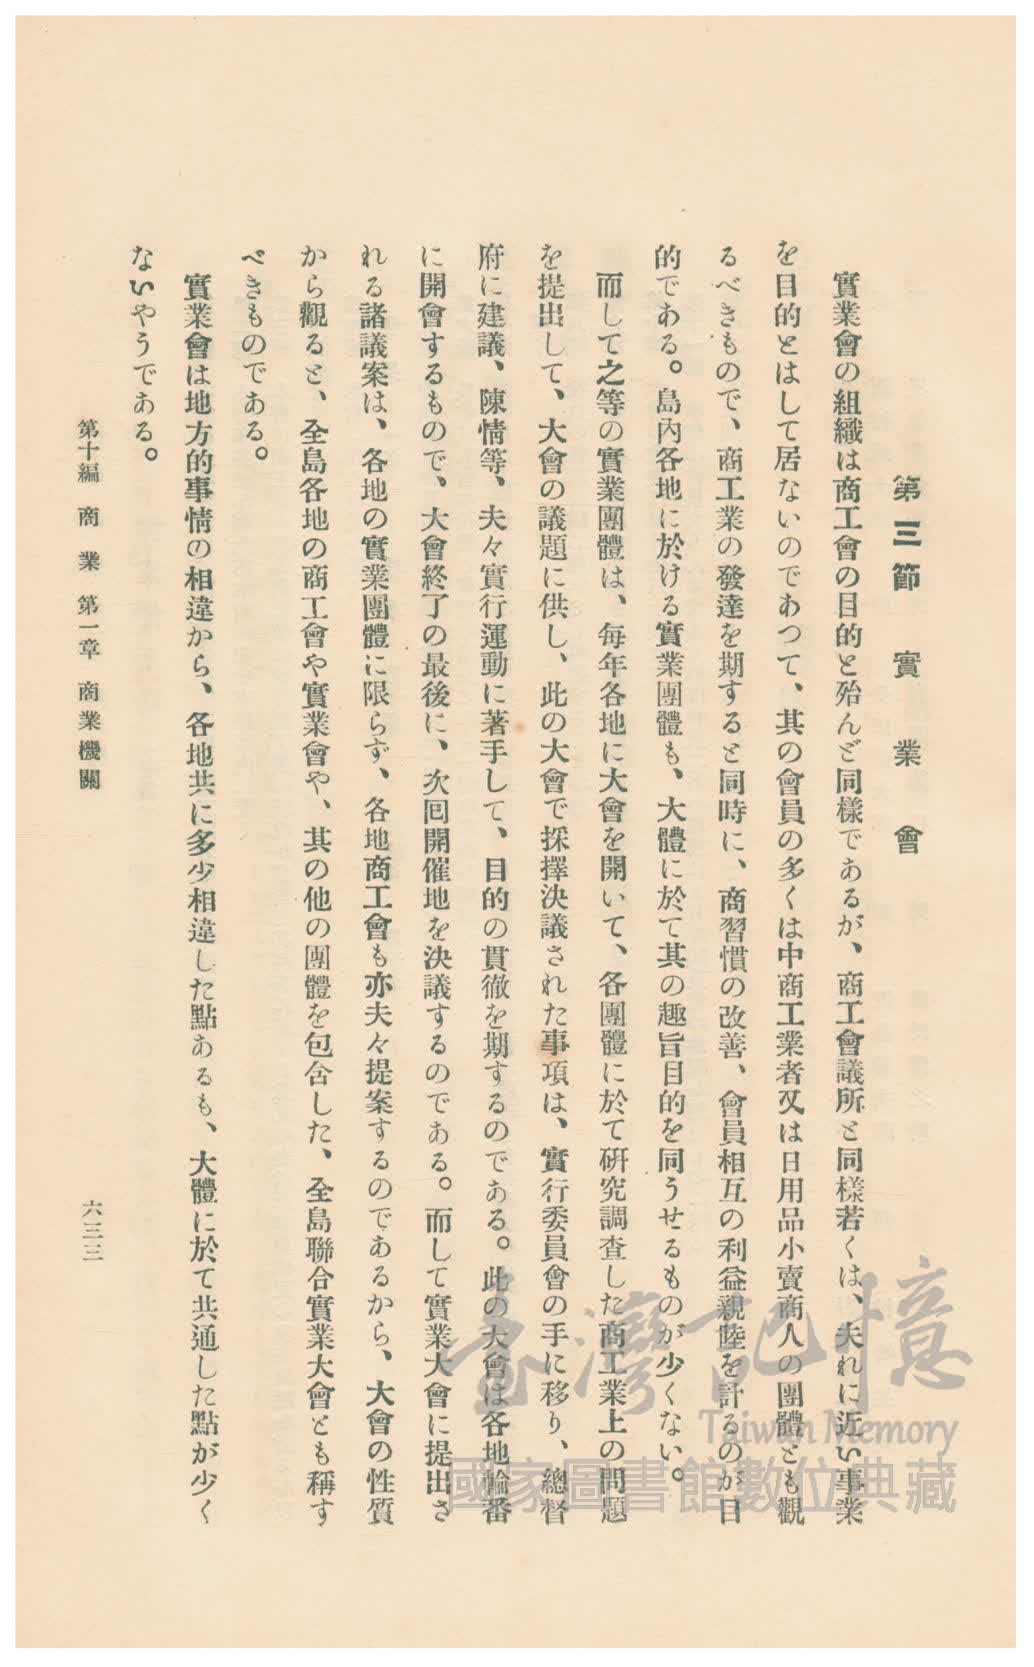 第三節　實業會
實業會の組織は商工會の目的と殆んど同樣であるが、商工會議所と同樣若くは、夫れに近い事業
を目的とはして居ないのであつて、其の會員の多くは中商工業者又は日用品小賣商人の團體とも觀
るべきもので、商工業の發達を期すると同時に、商習慣の改善、會員相互の利益親睦を計るのが目
的である。島內各地に於ける實業團體も、大體に於て其の趣旨目的を同うせるものが少くない。
而して之等の實業團體は、每年各地に大會を開いて、各團體に於て硏究調查した商工業上の問題
を提出して、大會の議題に供し、此の大會で採擇決議された事項は、實行委員會の手に移り、總督
府に建議、陳情等、夫々實行運動に著手して、目的の貫徹を期するのである。此の大會は各地輪番
に開會するもので、大會終了の最後に、次囘開催地を決議するのである。而して實業大會に提出さ
れる諸議案は、各地の實業團體に限らず、各地商工會も亦夫々提案するのであるから、大會の性質
から觀ると、全島各地の商工會や實業會や、其の他の團體を包含した、全島聯合實業大會とも稱す
べきものである。
實業會は地方的事情の相違から、各地共に多少相違した點あるも、大體に於て共通した點が少く
ないやうである。
第十編　商業　第一章　商業機關
六三三
臺灣記憶
Taiwan Memory
國家圖書館數位典藏